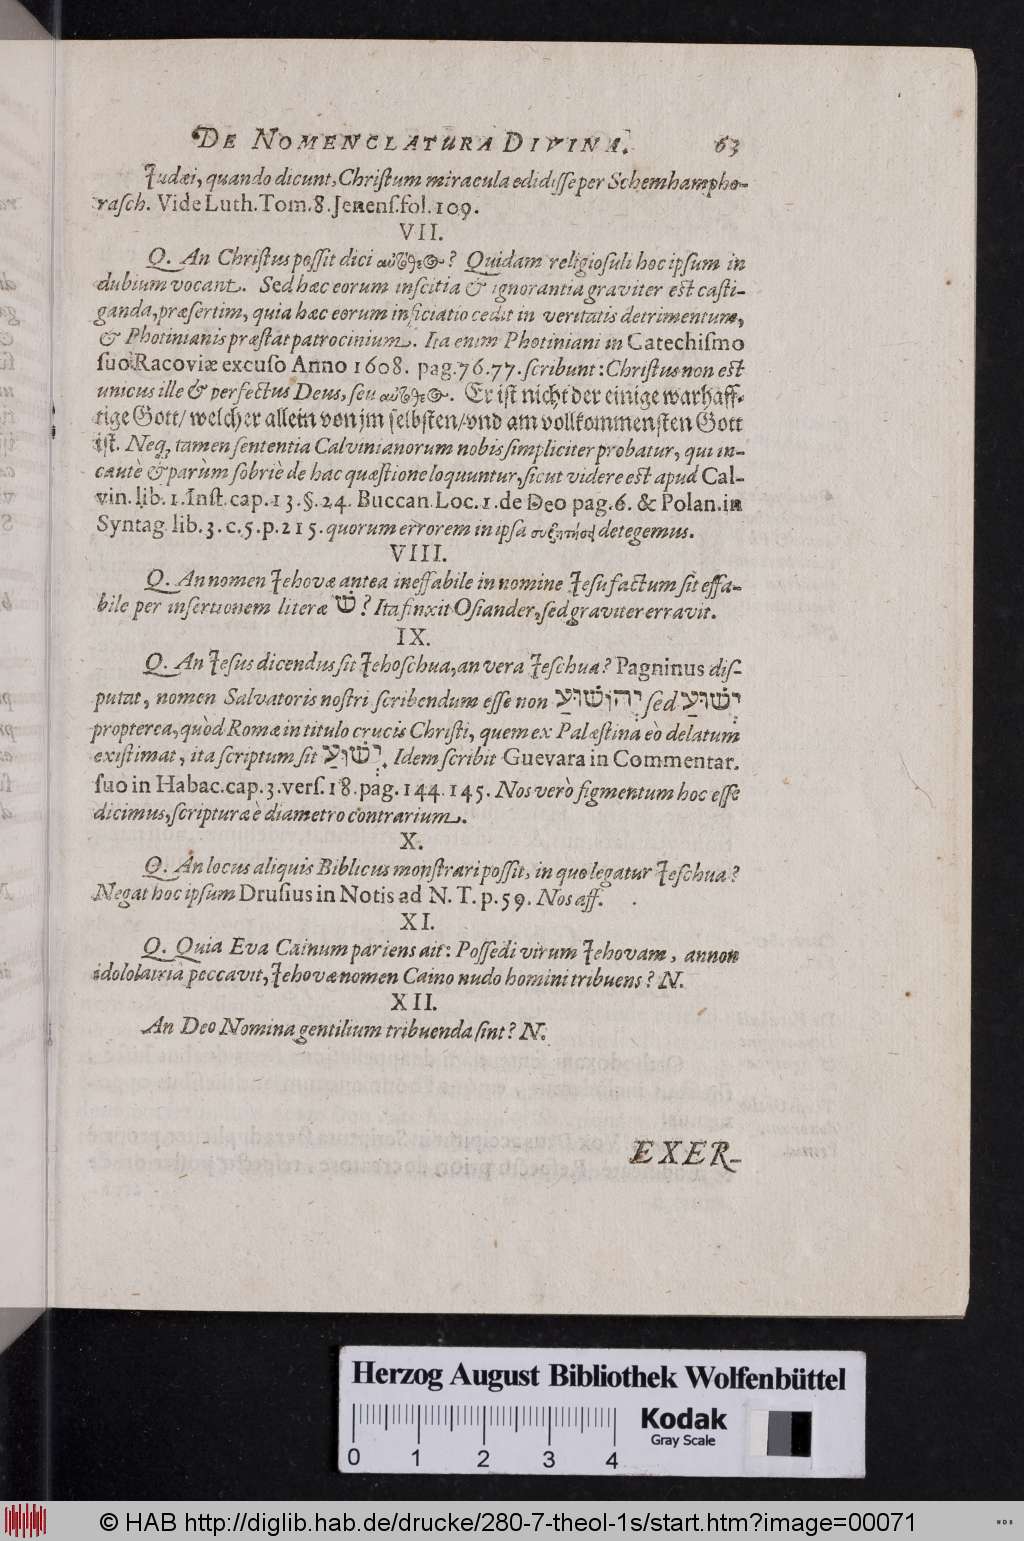 DE NOMENCLATURA DIVINA. 63
Judæi, quando dicunt, Christum miracula edidisse per Schemhampho-
rasch. Vide Luth. Tom. 8. Jenens. fol. 109.
VII.
Q. An Christus possit dici αὐτόθεος? Quidam religiosuli hoc ipsum in
dubium vocant. Sed hæc eorum inscitia & ignorantia graviter est casti-
ganda, præsertim, quia hæc eorum inficiatio cedit in veritatis detrimentum,
& Photinianis præstat patrocinium. Ita enim Photiniani in Catechismo
suo Racoviæ excuso Anno 1608. pag. 76. 77. scribunt: Christus non est
unicus ille & perfectus Deus, seu αὐτόθεος. Er ist nicht der einige warhaff-
tige Gott/ welcher allein von jm selbsten/ vnd am vollkommensten Gott
ist. Neq; tamen sententia Calvinianorum nobis simpliciter probatur, qui in-
cautè & parùm sobriè de hac quæstione loquuntur, sicut videre est apud Cal-
vin. lib. 1. Inst. cap. 13. §. 24. Buccan. Loc. 1. de Deo pag. 6. & Polan. in
Syntag. lib. 3. c. 5. p. 215. quorum errorem in ipsa συζητήσει detegemus.
VIII.
Q. An nomen Jehovæ antea ineffabile in nomine Jesu factum sit effa-
bile per insertionem literæ שׁ? Ita finxit Osiander, sed graviter erravit.
IX.
Q. An Jesus dicendus sit Jehoschua, an vera Jeschua? Pagninus dis-
putat, nomen Salvatoris nostri scribendum esse non יְהוֹשׁוּעַ sed יֵשׁוּעַ
propterea, quòd Romæ in titulo crucis Christi, quem ex Palæstina eò delatum
existimat, ita scriptum sit יֵשׁוּעַ. Idem scribit Guevara in Commentar.
suo in Habac. cap. 3. vers. 18. pag. 144. 145. Nos verò figmentum hoc esse
dicimus, scripturæ è diametro contrarium.
X.
Q. An locus aliquis Biblicus monstrari possit, in quo legatur Jeschua?
Negat hoc ipsum Drusius in Notis ad N. T. p. 59. Nos aff.
XI.
Q. Quia Eva Cainum pariens ait: Possedi virum Jehovam, annon
idololatriâ peccavit, Jehovæ nomen Caino nudo homini tribuens? N.
XII.
An Deo Nomina gentilium tribuenda sint? N.
EXER-
Herzog August Bibliothek Wolfenbüttel
0 1 2 3 4
Kodak
Gray Scale
© HAB http://diglib.hab.de/drucke/280-7-theol-1s/start.htm?image=00071